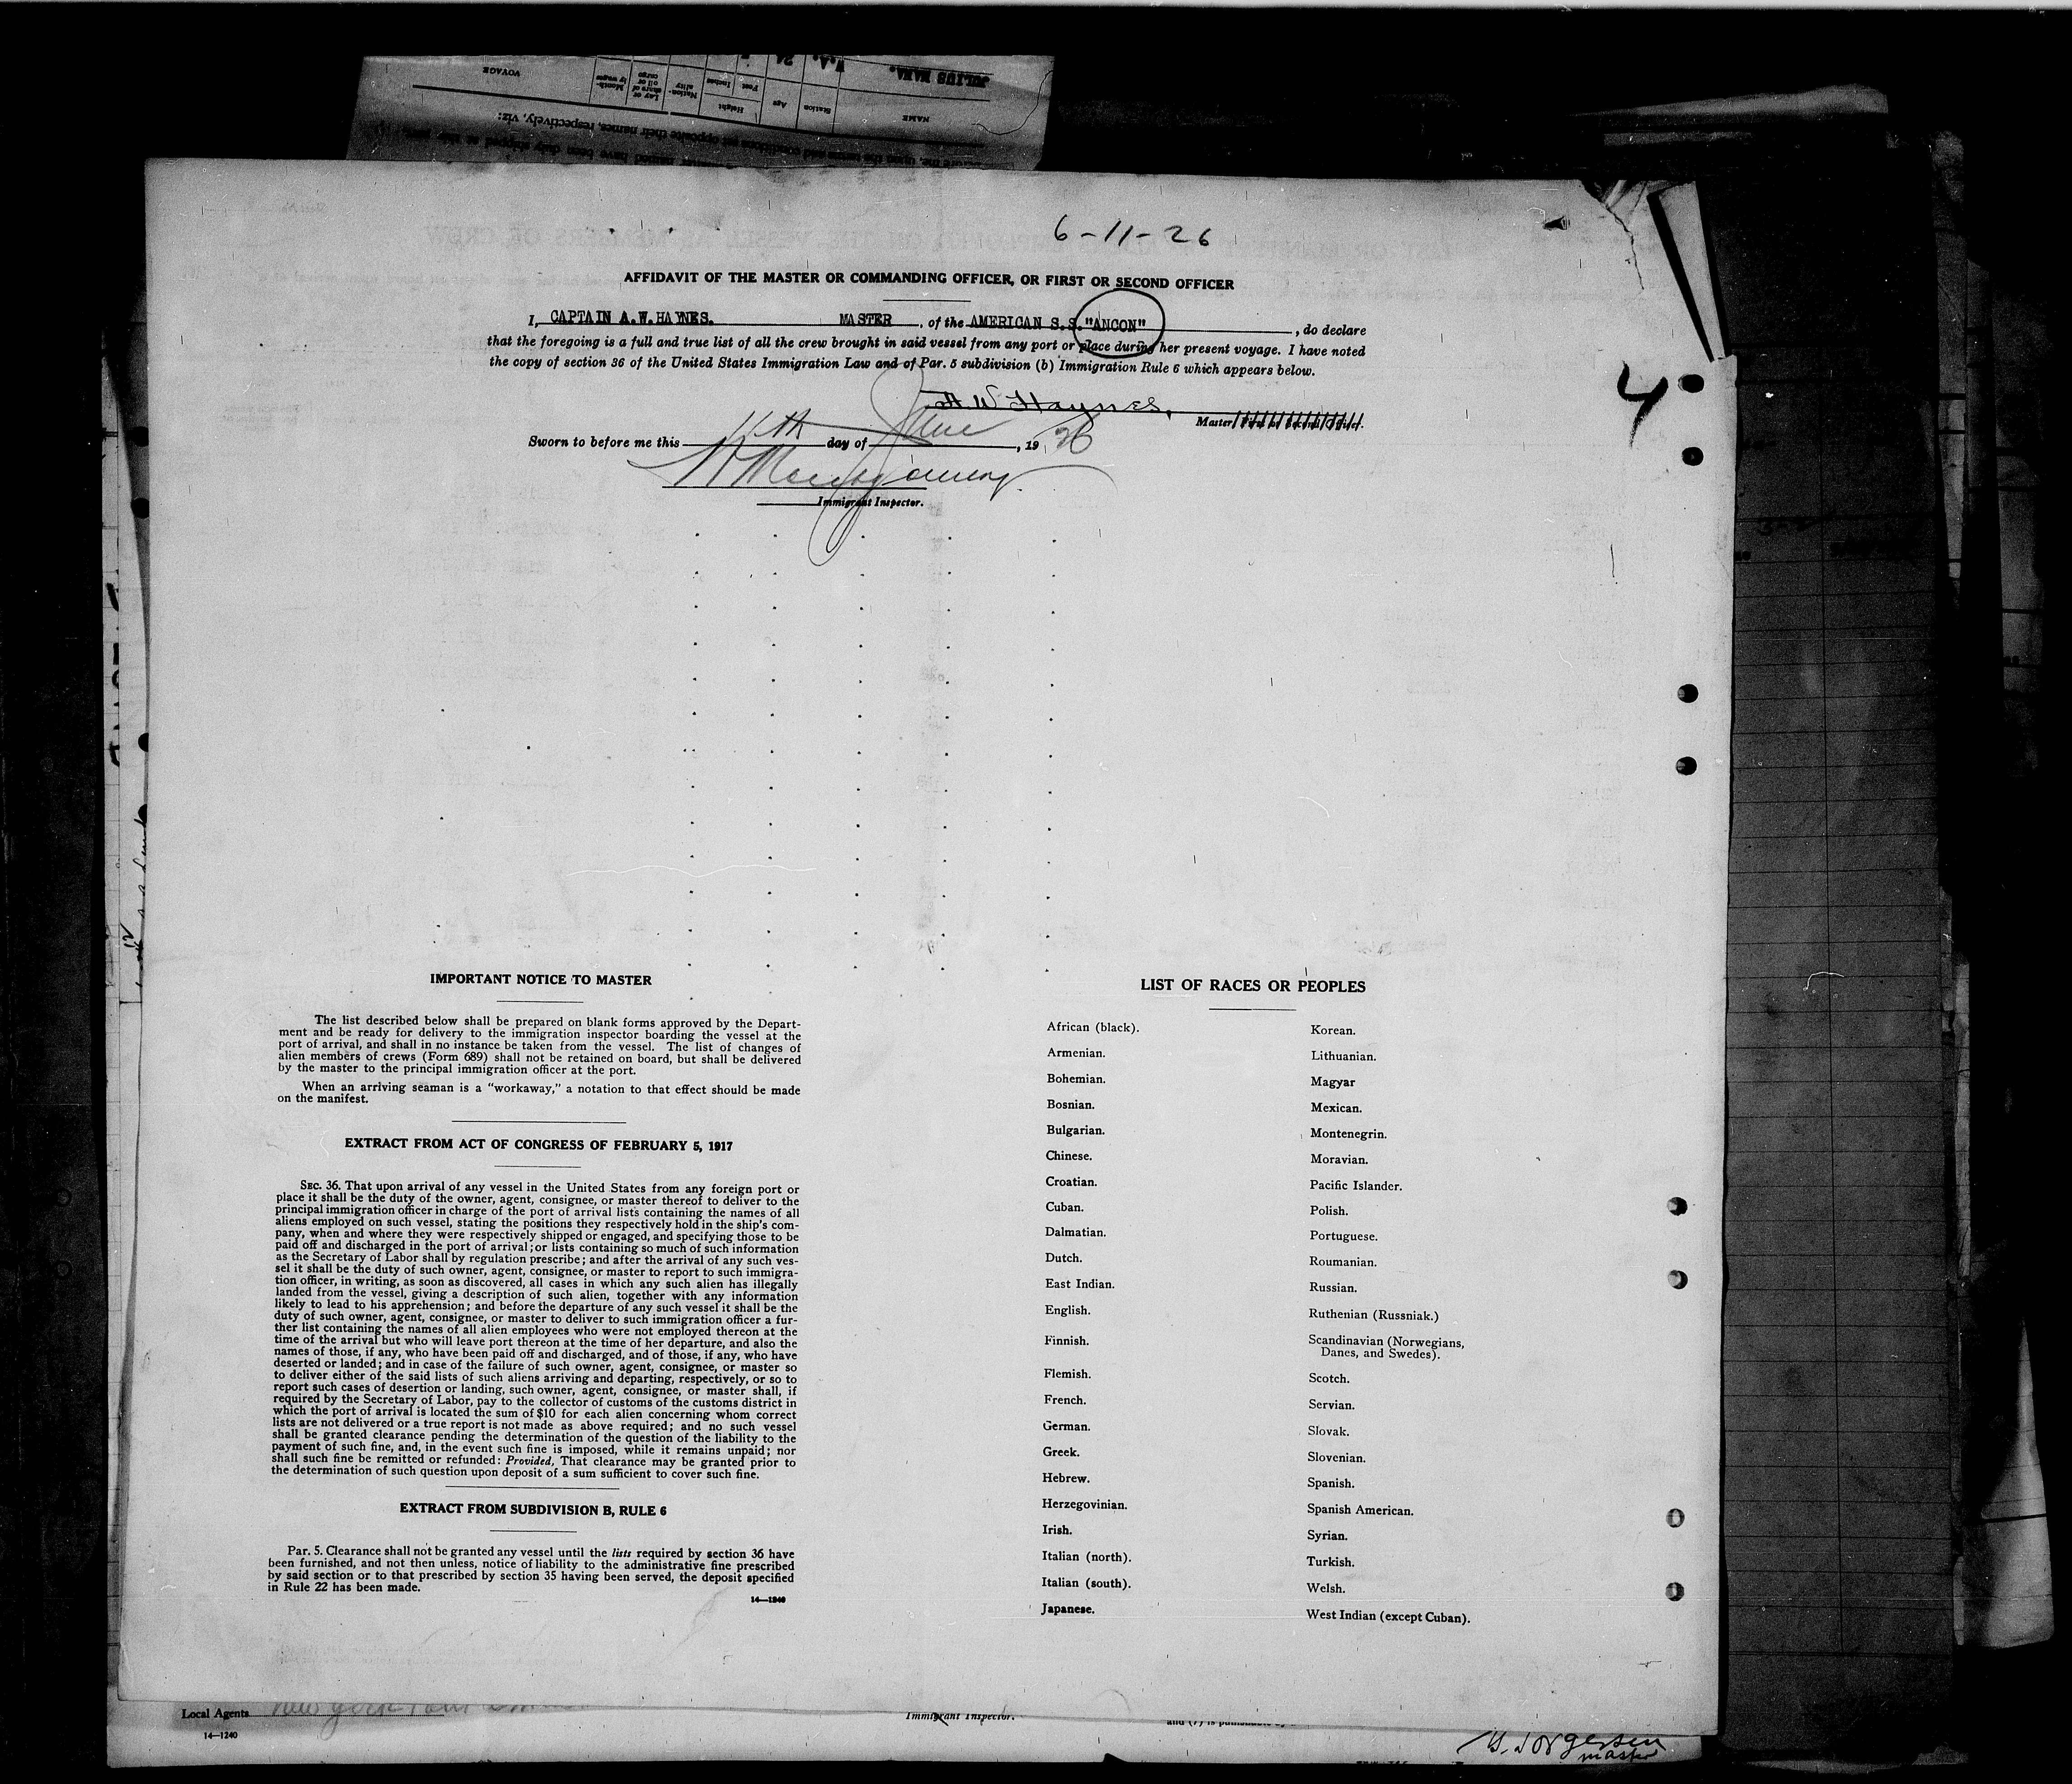 JULIUS MAHA.
V.A.
24
NAME
Station
Age
Height
Feet
Inches
Nation-
ality
Lay or
share of
oil or
cargo
Month-
ly wages
VOYAGE
6-11-26
AFFIDAVIT OF THE MASTER OR COMMANDING OFFICER, OR FIRST OR SECOND OFFICER
I, CAPTAIN A.W.HAYNES. MASTER, of the AMERICAN S.S."ANCON", do declare
that the foregoing is a full and true list of all the crew brought in said vessel from any port or place during her present voyage. I have noted
the copy of section 36 of the United States Immigration Law and of Par. 5 subdivision (b) Immigration Rule 6 which appears below.
A W Haynes,
Master, First or Second Officer.
Sworn to before me this 11th day of June, 1926
Montgomery
Immigrant Inspector.
4
IMPORTANT NOTICE TO MASTER
The list described below shall be prepared on blank forms approved by the Depart-
ment and be ready for delivery to the immigration inspector boarding the vessel at the
port of arrival, and shall in no instance be taken from the vessel. The list of changes of
alien members of crews (Form 689) shall not be retained on board, but shall be delivered
by the master to the principal immigration officer at the port.
When an arriving seaman is a "workaway," a notation to that effect should be made
on the manifest.
EXTRACT FROM ACT OF CONGRESS OF FEBRUARY 5, 1917
SEC. 36. That upon arrival of any vessel in the United States from any foreign port or
place it shall be the duty of the owner, agent, consignee, or master thereof to deliver to the
principal immigration officer in charge of the port of arrival lists containing the names of all
aliens employed on such vessel, stating the positions they respectively hold in the ship's com-
pany, when and where they were respectively shipped or engaged, and specifying those to be
paid off and discharged in the port of arrival; or lists containing so much of such information
as the Secretary of Labor shall by regulation prescribe; and after the arrival of any such ves-
sel it shall be the duty of such owner, agent, consignee, or master to report to such immigra-
tion officer, in writing, as soon as discovered, all cases in which any such alien has illegally
landed from the vessel, giving a description of such alien, together with any information
likely to lead to his apprehension; and before the departure of any such vessel it shall be the
duty of such owner, agent, consignee, or master to deliver to such immigration officer a fur-
ther list containing the names of all alien employees who were not employed thereon at the
time of the arrival but who will leave port thereon at the time of her departure, and also the
names of those, if any, who have been paid off and discharged, and of those, if any, who have
deserted or landed; and in case of the failure of such owner, agent, consignee, or master so
to deliver either of the said lists of such aliens arriving and departing, respectively, or so to
report such cases of desertion or landing, such owner, agent, consignee, or master shall, if
required by the Secretary of Labor, pay to the collector of customs of the customs district in
which the port of arrival is located the sum of $10 for each alien concerning whom correct
lists are not delivered or a true report is not made as above required; and no such vessel
shall be granted clearance pending the determination of the question of the liability to the
payment of such fine, and, in the event such fine is imposed, while it remains unpaid; nor
shall such fine be remitted or refunded: Provided, That clearance may be granted prior to
the determination of such question upon deposit of a sum sufficient to cover such fine.
EXTRACT FROM SUBDIVISION B, RULE 6
Par. 5. Clearance shall not be granted any vessel until the lists required by section 36 have
been furnished, and not then unless, notice of liability to the administrative fine prescribed
by said section or to that prescribed by section 35 having been served, the deposit specified
in Rule 22 has been made.
14—1240
LIST OF RACES OR PEOPLES
African (black).
Armenian.
Bohemian.
Bosnian.
Bulgarian.
Chinese.
Croatian.
Cuban.
Dalmatian.
Dutch.
East Indian.
English.
Finnish.
Flemish.
French.
German.
Greek.
Hebrew.
Herzegovinian.
Irish.
Italian (north).
Italian (south).
Japanese.
Korean.
Lithuanian.
Magyar
Mexican.
Montenegrin.
Moravian.
Pacific Islander.
Polish.
Portuguese.
Roumanian.
Russian.
Ruthenian (Russniak.)
Scandinavian (Norwegians,
Danes, and Swedes).
Scotch.
Servian.
Slovak.
Slovenian.
Spanish.
Spanish American.
Syrian.
Turkish.
Welsh.
West Indian (except Cuban).
Local Agents New York
14—1240
Immigrant Inspector.
Jorgensen
master